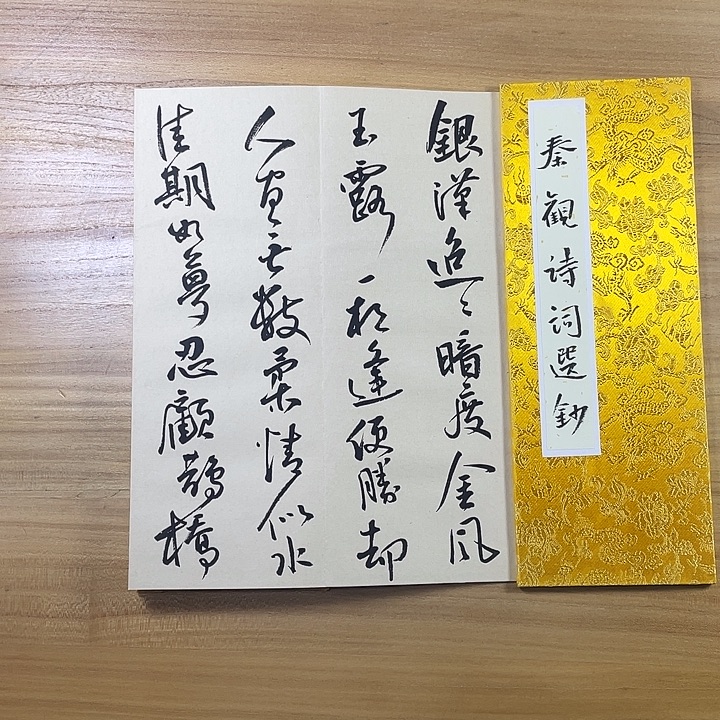 秦觀詩詞選鈔
銀漢迢〻暗度金風
玉露一相逢便勝却
人間無數柔情似水
佳期如夢忍顧鵲橋